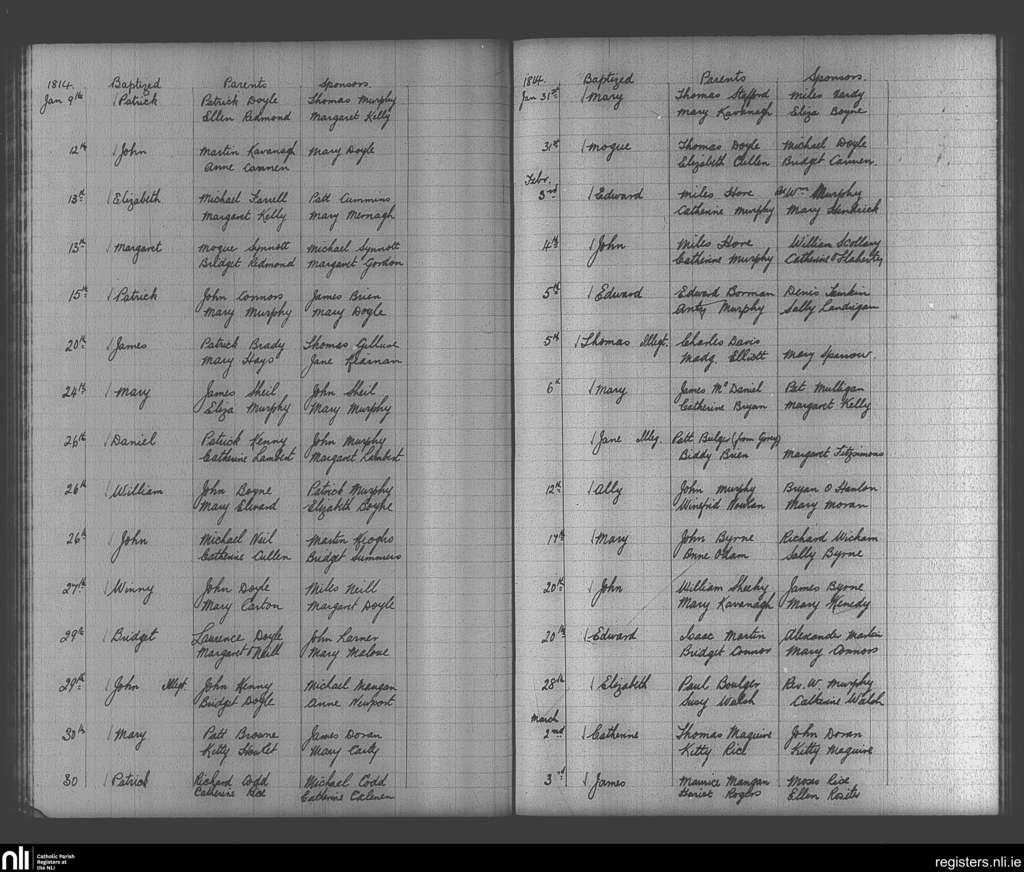 1814. Baptized Parents Sponsors.
Jan 9th 1 Patrick Patrick Doyle Thomas Murphy
Ellen Redmond Margaret Kelly
12th 1 John Martin Kavanagh Mary Doyle
Anne
13th 1 Elizabeth Michael Farrell Patt Cummins
Margaret Kelly Mary Mernagh
13th 1 Margaret Mogue Synnott Michael Synnott
Bridget Redmond Margaret Gordon
15th 1 Patrick John Connors James Brien
Mary Murphy Mary Doyle
20th 1 James Patrick Brady Thomas
Mary Hays Jane Kearnan
24th 1 Mary James Sheil John Sheil
Eliza Murphy Mary Murphy
26th 1 Daniel Patrick Kenny John Murphy
Catherine Lambert Margaret Lambert
26th 1 William John Boyne Patrick Murphy
Mary Elward Elizabeth Boyne
26th 1 John Michael Neil Martin Keoghs
Catherine Cullen Bridget Summers
27th 1 Winny John Doyle Miles Neill
Mary Carton Margaret Doyle
29th 1 Bridget Laurence Doyle John Larner
Margaret O'Neill Mary Malone
29th 1 John Illegt. John Kenny Michael Mangan
Bridget Doyle Anne Newport
30th 1 Mary Patt Browne James Doran
Kitty Howlet Mary Carty
30 1 Patrick Richard Codd Michael Codd
Catherine Rice Catherine
1814. Baptized Parents Sponsors.
Jan 31st 1 Mary Thomas Stafford Miles Vardy
Mary Kavanagh Eliza Boyne
31st 1 Mogue Thomas Doyle Michael Doyle
Elizabeth Cullen Bridget
Febr.
3rd 1 Edward Miles Hore Wm Murphy
Catherine Murphy Mary Hendrick
4th 1 John Miles Hore William Scollary
Catherine Murphy Catherine O'Flaherty
5th 1 Edward Edward Borman Denis
Anty Murphy Sally Landrigan
5th 1 Thomas Illegt. Charles Davis
Madg. Elliott Mary Sparrow.
6th 1 Mary James McDaniel Pat Mulligan
Catherine Bryan Margaret Kelly
1 Jane Illeg. Patt Bulger (from Gorey)
Biddy Brien Margaret Fitzsimons
12th 1 Ally John Murphy Bryan O Hanlon
Winefrid Nowlan Mary Moran
17th 1 Mary John Byrne Richard Wicham
Anne Sally Byrne
20th 1 John William Sheehy James Byrne
Mary Kavanagh Mary Kenedy
20th 1 Edward Isaac Martin Alexander Martin
Bridget Connor Mary Connors
28th 1 Elizabeth Paul Boulger Rev. W. Murphy
Susy Walsh Catherine Walsh
March
2nd 1 Catherine Thomas Maguire John Doran
Kitty Rice Kitty Maguire
3rd 1 James Maurice Mangan Moses Rice
Harriet Rogers Ellen Rositer
nli
Catholic Parish
Registers at
the NLI
registers.nli.ie